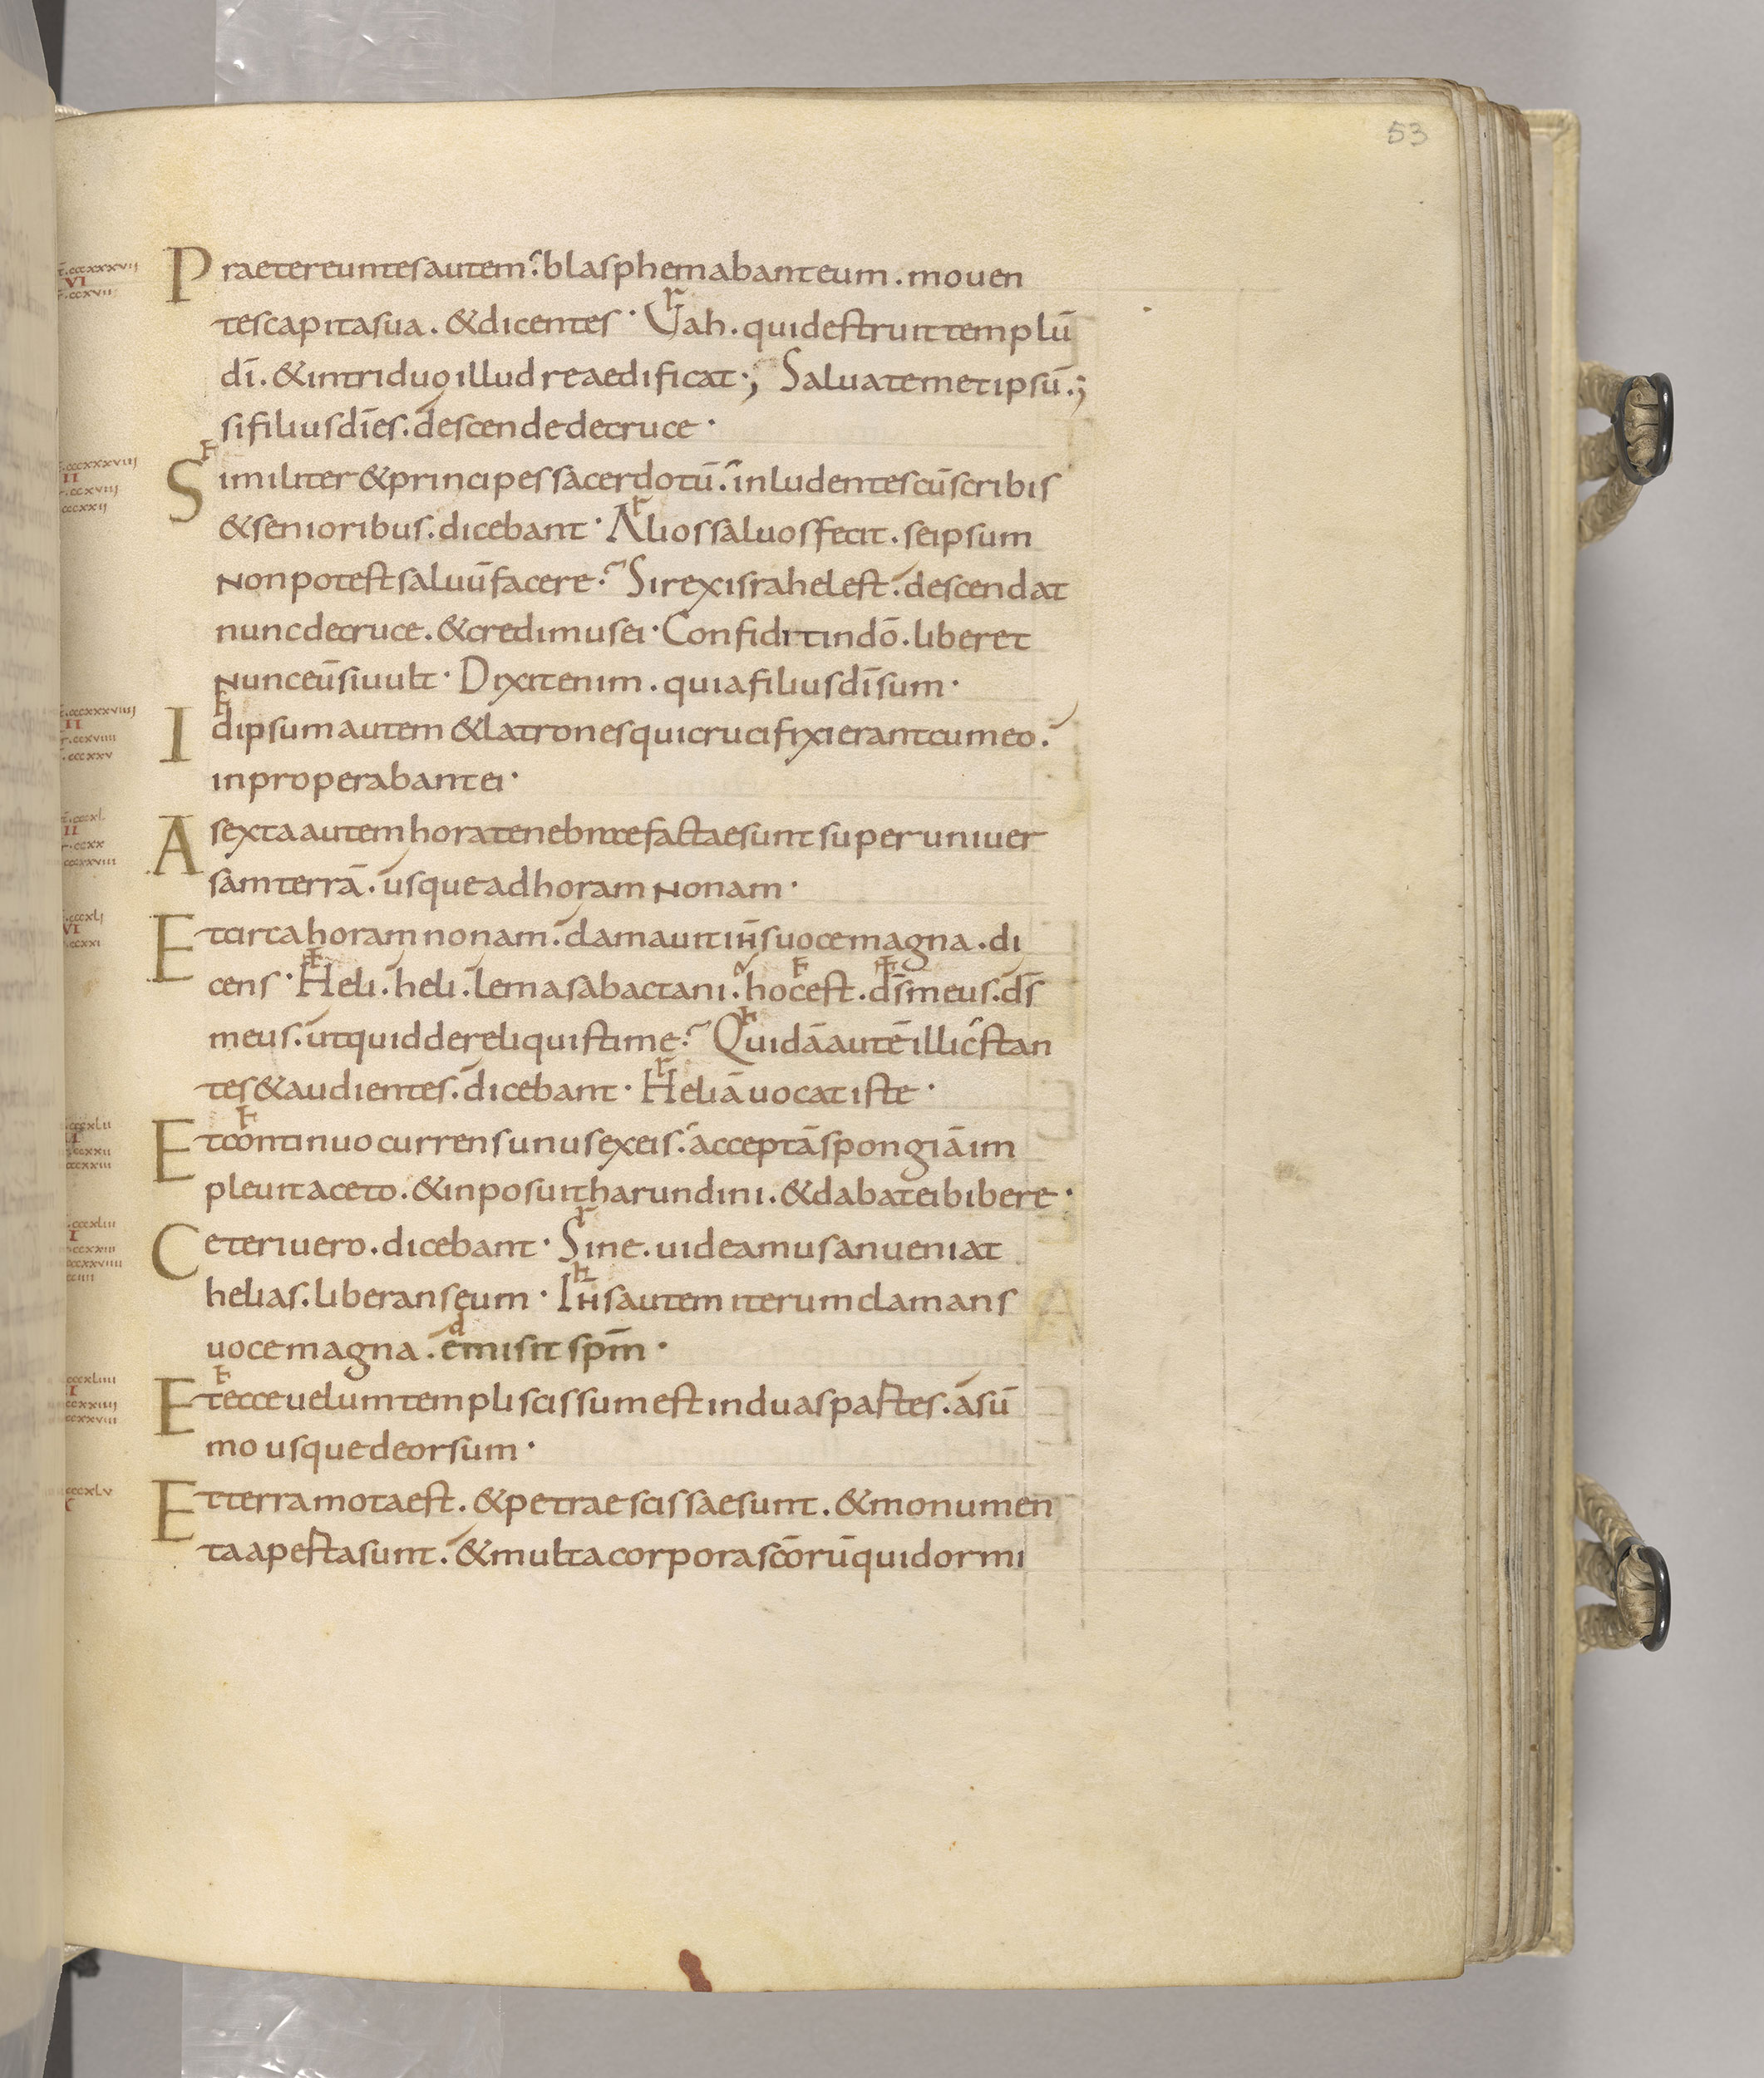 53
Praetereuntes autem blasphemabant eum. mouen
tes capita sua. & dicentes · Uah. qui destruit templū
dī. & in triduo illud reaedificat; Salua temetipsū;
si filius dī es. descende de cruce ·
Similiter & principes sacerdotū. inludentes cū scribis
& senioribus. dicebant · Alios saluos fecit. seipsum
non potest saluū facere. Si rex israhel est. descendat
nunc de cruce. & credimus ei · Confidit in dō. liberet
nunc eū si uult · Dixit enim. quia filius dī sum ·
Idipsum autem & latrones qui crucifixi erant cum eo.
inproperabant ei ·
A sexta autem hora tenebrae factae sunt super uniuer
sam terrā. usque ad horam nonam ·
Et circa horam nonam. clamauit ihs uoce magna. di
cens · Heli. heli. lema sabactani. hoc est. ds̄ meus. ds̄
meus. ut quid dereliquisti me? Quidā autē illic stan
tes & audientes. dicebant · Heliā uocat iste ·
Et continuo currens unus ex eis. acceptā spongiā im
pleuit aceto. & inposuit harundini. & dabat ei bibere ·
Ceteri uero. dicebant · Sine. uideamus an ueniat
helias. liberans eum · Ihs autem iterum clamans
uoce magna. emisit spm̄ ·
Et ecce uelum templi scissum est in duas partes. a sū
mo usque deorsum ·
Et terra mota est. & petrae scissae sunt. & monumen
ta aperta sunt. & multa corpora scōrū qui dormi